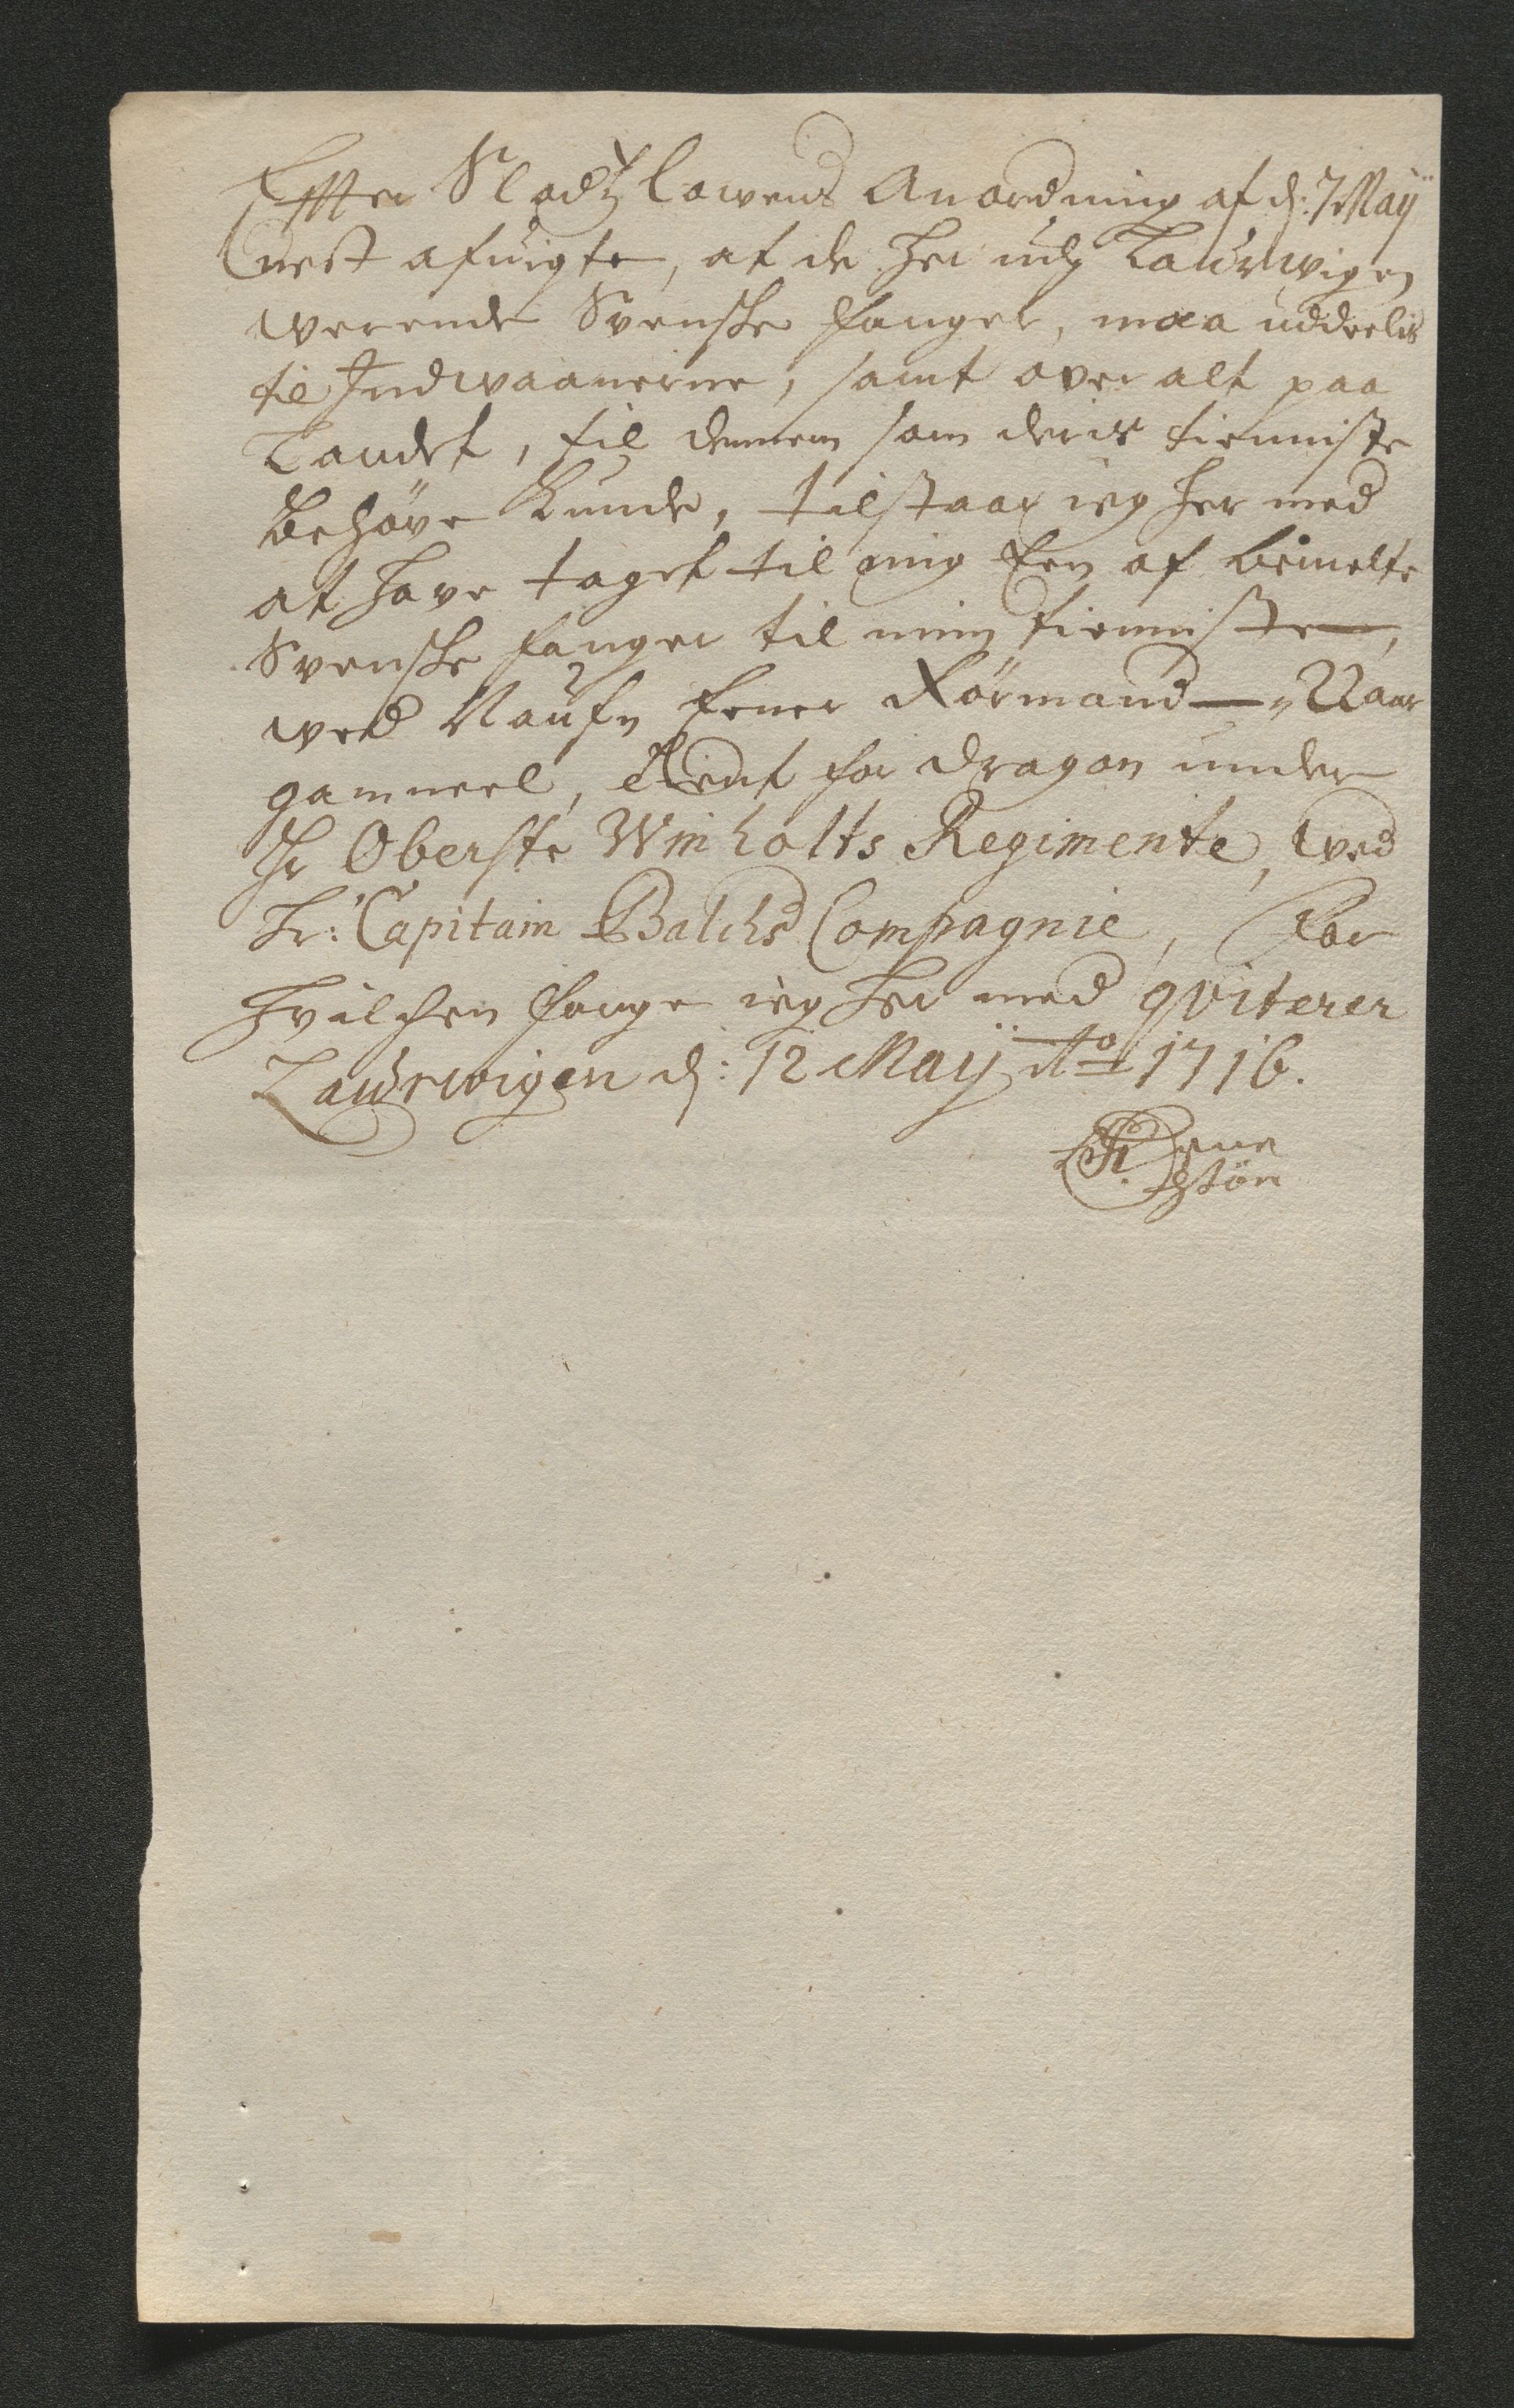 Effter Slodtzlowens Anordning af d: 7 Maÿ
nest afvigte, at de her udj Laurwigen
werende Svenske fanger, maa uddeelis
til Indwaanerne, samt over alt paa
Landet, til dennem som deris tienniste
behöve kunde, tilstaar ieg her med
at have taget til mig Een af bemelte
Svenske fanger til min tienniste,
wed Nafn Ener Körmand 22 aar
gammel, tient for dragon under
Hr Oberste Winholts Regimente, wed
Hr: Capitain Balchs Compagnie, For
hvilchen fange ieg her med qviterer
Laurwigen d: 12 Maÿ Ao 1716.